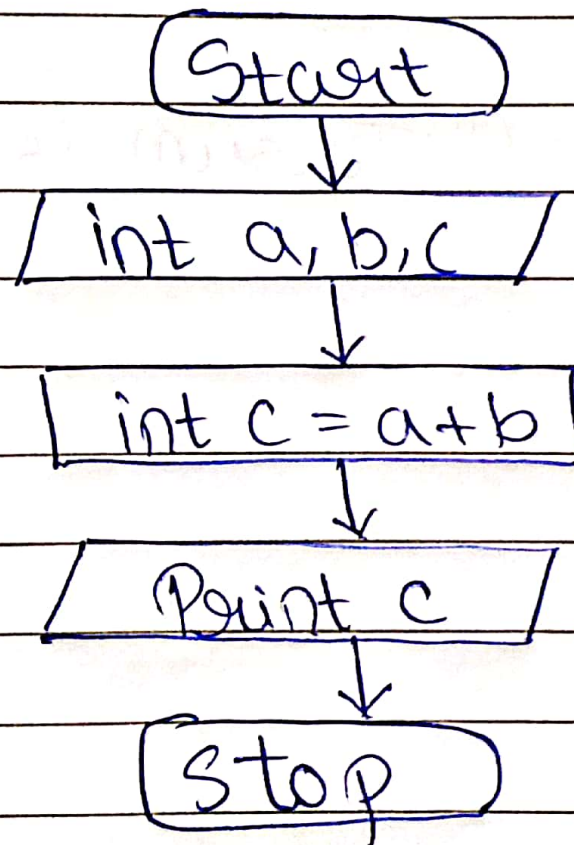 Start
int a, b, c
int c = a+b
Print c
stop